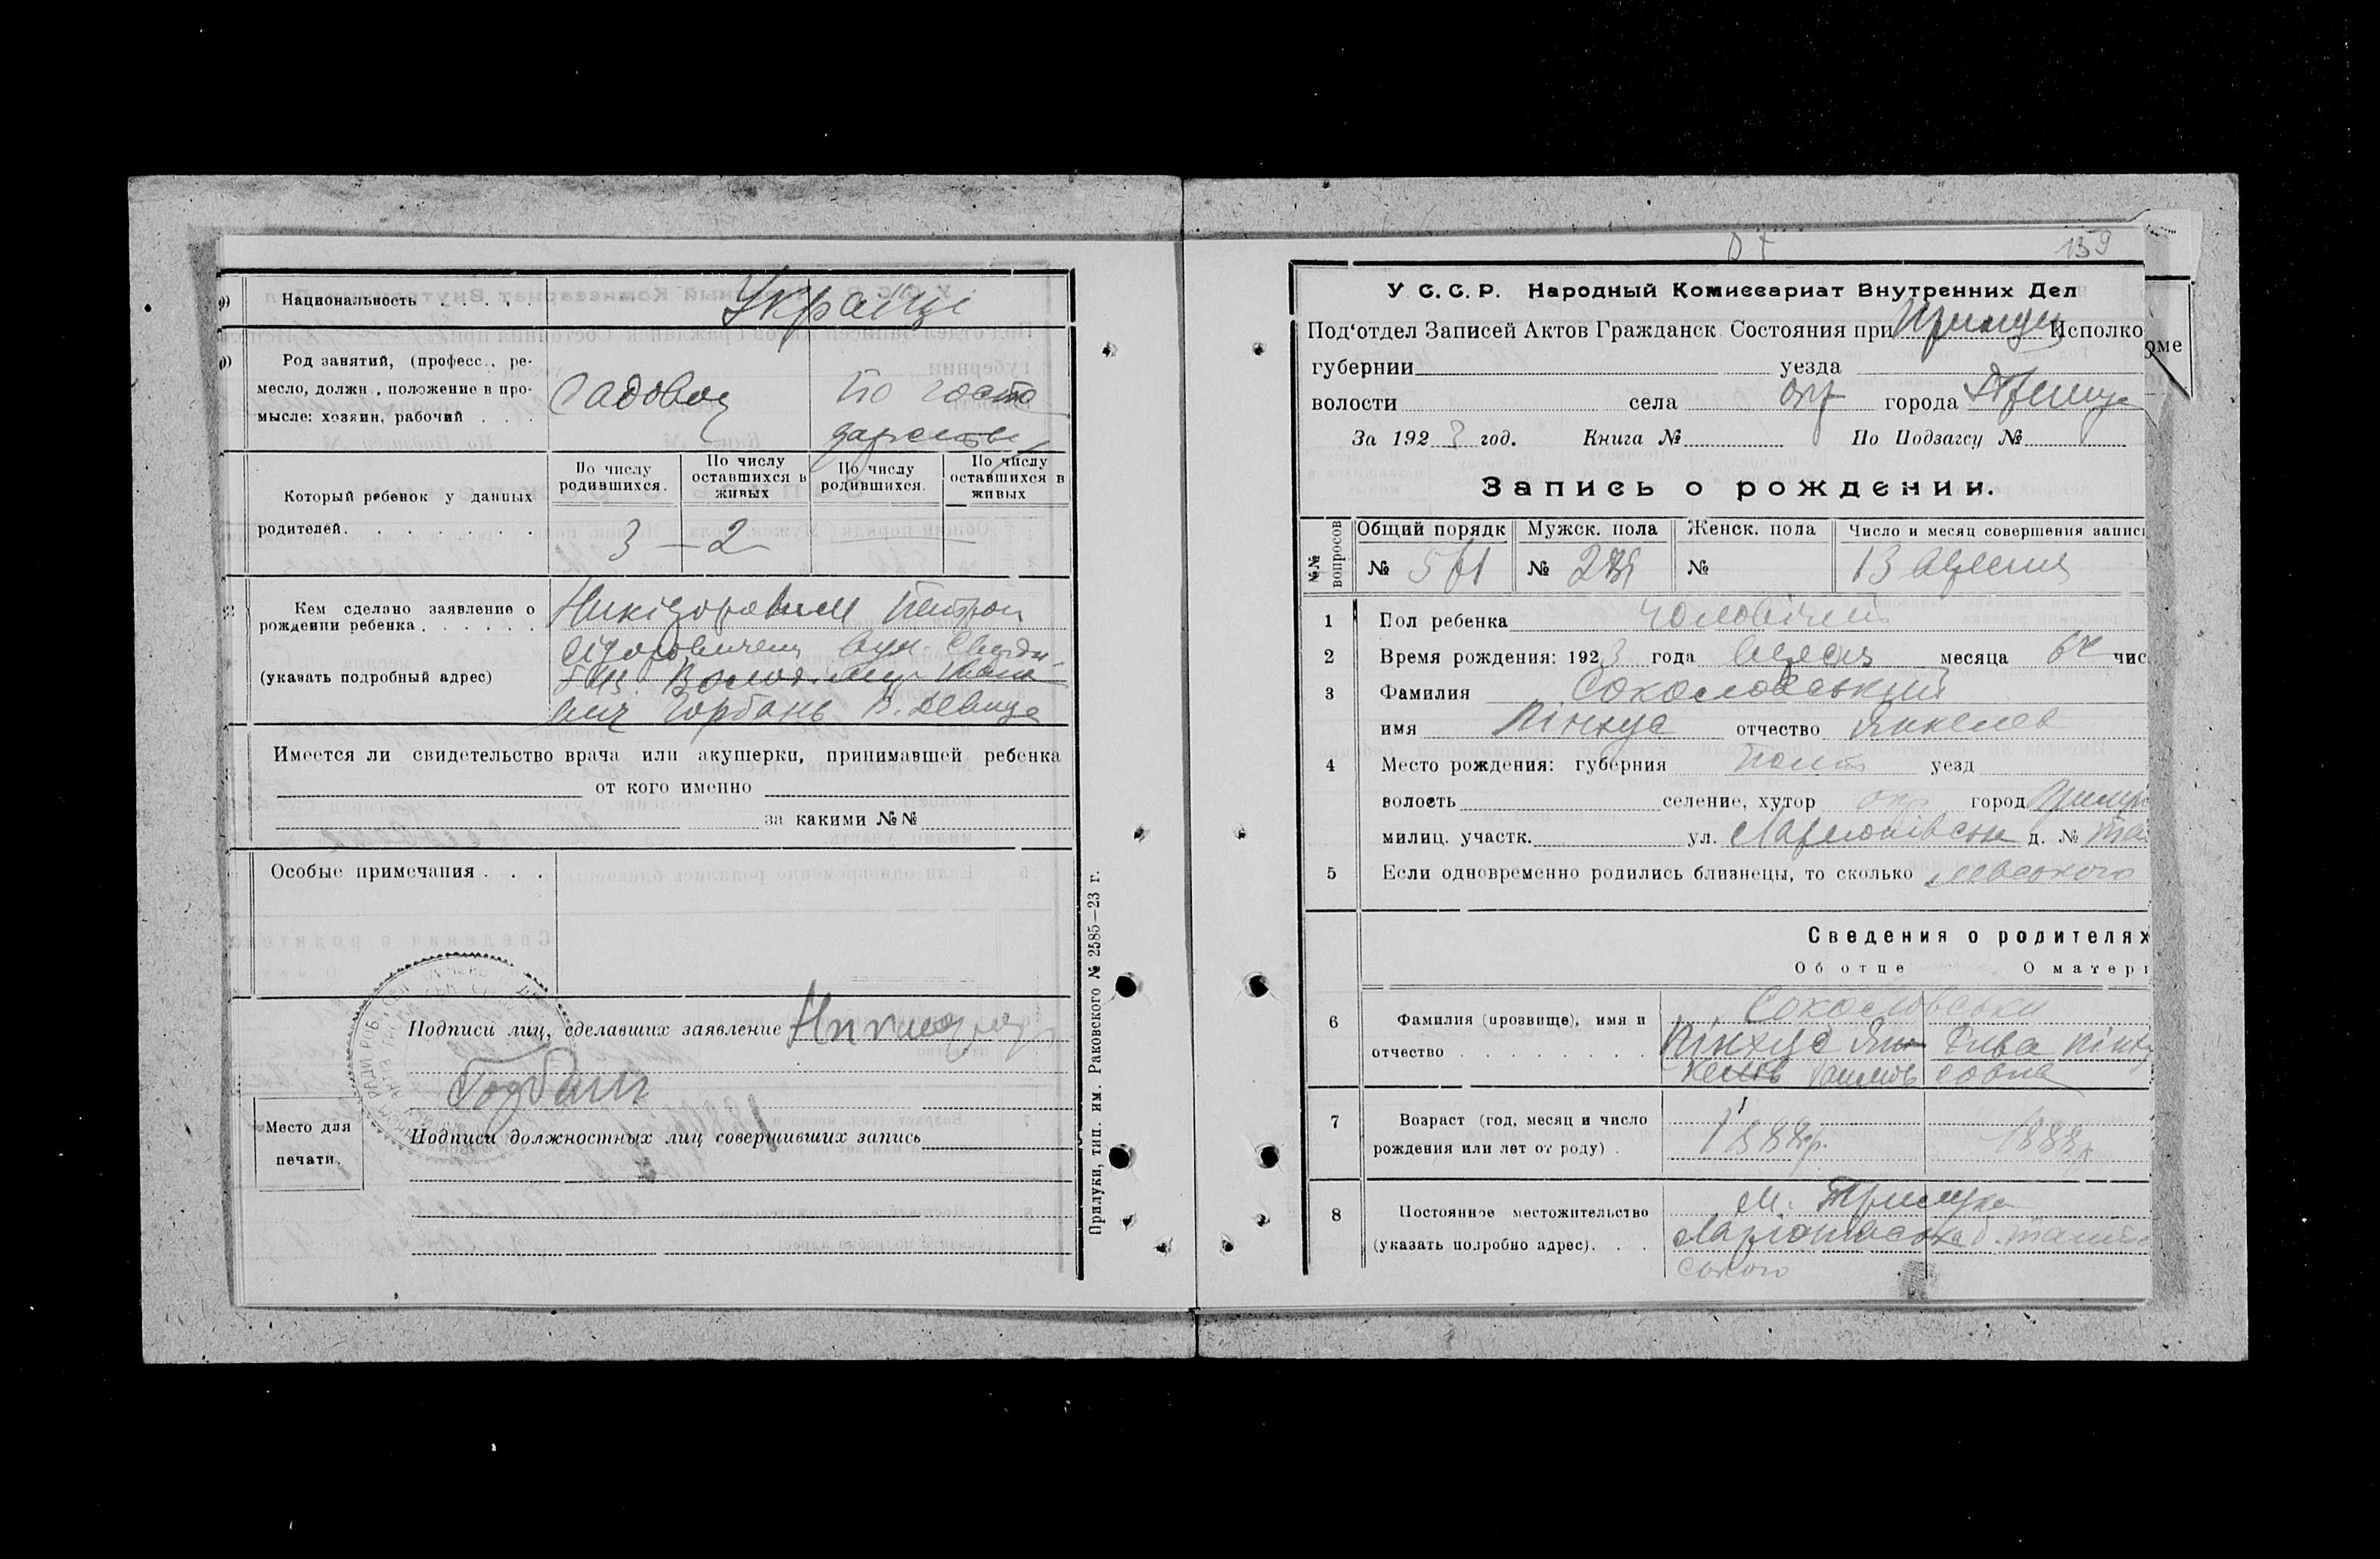 Национальность . . . . . Українці
Род занятий, (професс., ре-
месло, должн., положение в про-
мысле: хозяин, рабочий . . .
Садовод
По госпо
дарстві
Который ребенок у данных
родителей. . . . . . . .
По числу
родившихся.
По числу
оставшихся в
живых
По числу
родившихся.
По числу
оставшихся в
живых
3 — 2
Кем сделано заявление о
рождении ребенка . . . . . .
(указать подробный адрес)
Петром
Горбань В. Девица
Имеется ли свидетельство врача или акушерки, принимавшей ребенка
от кого именно
за какими №№
Особые примечания . . .
Подписи лиц, сделавших заявление
Горбань
Подписи должностных лиц совершивших запись
Место для
печати.
Прилуки, тип. им. Раковского № 2585—23 г.
159
У С. С. Р. Народный Комиссариат Внутренних Дел
Под‘отдел Записей Актов Гражданск. Состояния при Прилуц Исполко
оме
губернии уезда
волости села окр города Прилуц
За 192 3 год. Книга № По Подзагсу №
Запись о рождении.
№№
вопросов
Общий порядк
Мужск. пола
Женск. пола
Число и месяц совершения запис
№
№
№
13
1 Пол ребенка чоловічий
2 Время рождения: 1923 года месяца 6го чис
3 Фамилия Сокословський
имя Пінхус отчество Янкелев
4 Место рождения: губерния Полт уезд
волость селение, хутор окр город Прилуки
милиц. участк. ул. Ларионівська д. №
5 Если одновременно родились близнецы, то сколько
Сведения о родителях
Об отце
О матери
6 Фамилия (прозвище), имя и
отчество . . . . . . . .
Сокословськи
Пінхус Ян
келев
Рива Пінху
совна
7 Возраст (год, месяц и число
рождения или лет от роду) .
1888р.
1888р
8 Постоянное местожительство
(указать подробно адрес). . .
м. Прилуки
Ларионівська д.
ського